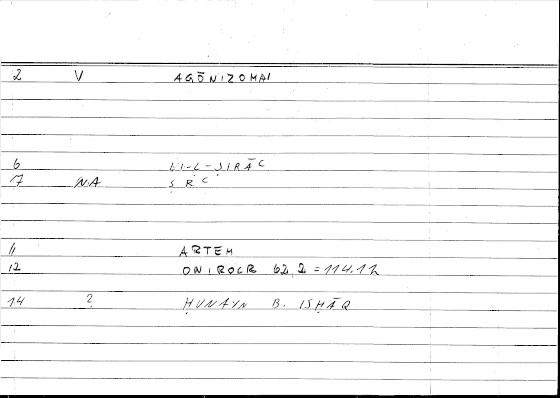 2 V AGŌNIZOMAI
6 LI-L-ṢIRĀʿ
7 NA ṢRʿ
11 ARTEM
12 ONIROCR 62,2 = 114.12
14 ? ḤUNAYN B. ISḤĀQ